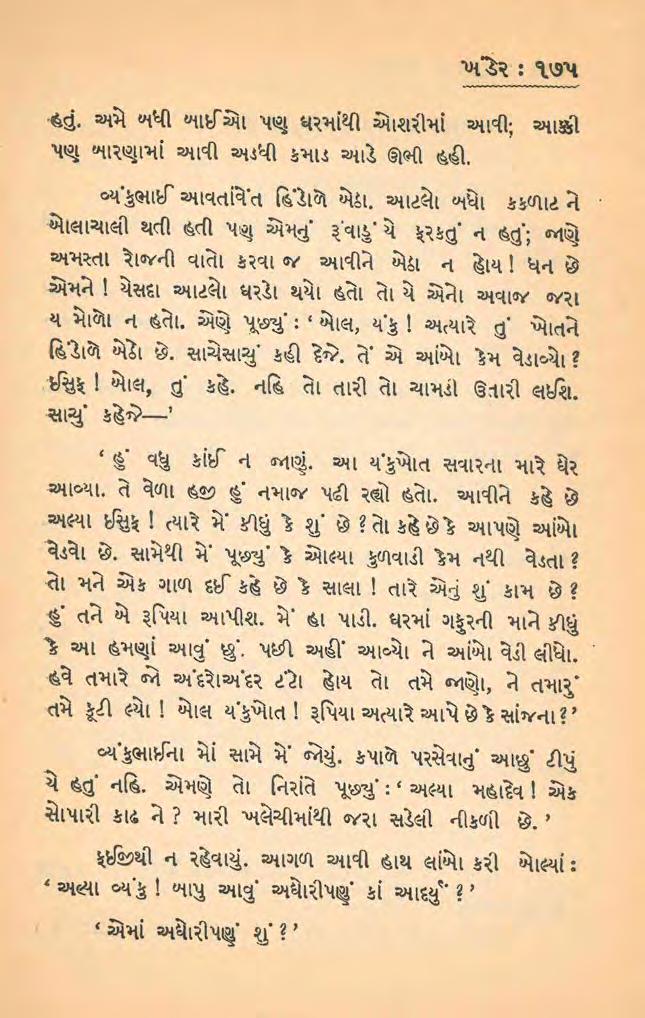 ખંડેર : ૧૭૫
હતું. અમે બધી બાઈઓ પણ ઘરમાંથી ઓશરીમાં આવી; આક્કી
પણ બારણામાં આવી અડધી કમાડ આડે ઊભી હહી.
વ્યંકુભાઈ આવતાંવેંત હિંડોળે બેઠા. આટલો બધો કકળાટ ને
બોલાચાલી થતી હતી પણ એમનું રૂંવાડું યે ફરકતું ન હતું; જાણે
અમસ્તા રોજની વાતો કરવા જ આવીને બેઠા ન હોય! ધન છે
એમને! યેસદા આટલો ઘરડો થયો હતો તો યે એનો અવાજ જરા
ય મોળો ન હતો. એણે પૂછ્યું : ‘બોલ, યંકુ! અત્યારે તું ખોતને
હિંડોળે બેઠો છે. સાચેસાચું કહી દેજે. તેં એ આંબો કેમ વેડાવ્યો?
ઈસુફ! બોલ, તું કહે. નહિ તો તારી તો ચામડી ઉતારી લઈશ.
સાચું કહેજે—’
‘હું વધુ કાંઈ ન જાણું. આ યંકુખોત સવારના મારે ઘેર
આવ્યા. તે વેળા હજી હું નમાજ પઢી રહ્યો હતો. આવીને કહે છે
અલ્યા ઈસુફ! ત્યારે મેં કીધું કે શું છે? તો કહે છે કે આપણે આંબો
વેડવો છે. સામેથી મેં પૂછ્યું કે ઓલ્યા કુળવાડી કેમ નથી વેડતા?
તો મને એક ગાળ દઈ કહે છે કે સાલા! તારે એનું શું કામ છે?
હું તને બે રૂપિયા આપીશ. મેં હા પાડી. ઘરમાં ગફુરની માને કીધું
કે આ હમણાં આવું છું. પછી અહીં આવ્યો ને આંબો વેડી લીધો.
હવે તમારે જો અંદરોઅંદર ટંટો હોય તો તમે જાણો, ને તમારું
તમે ફૂટી લ્યો! બોલ યંકુખોત! રૂપિયા અત્યારે આપે છે કે સાંજના?’
વ્યંકુભાઈના મોં સામે મેં જોયું. કપાળે પરસેવાનું આછું ટીપું
યે હતું નહિ. એમણે તો નિરાંતે પૂછ્યું : ‘અલ્યા મહાદેવ! એક
સોપારી કાઢ ને? મારી ખલેચીમાંથી જરા સડેલી નીકળી છે.’
ફઈજીથી ન રહેવાયું. આગળ આવી હાથ લાંબો કરી બોલ્યાં :
‘અલ્યા વ્યંકુ! બાપુ આવું અઘોરીપણું કાં આદર્યું?’
‘એમાં અઘોરીપણું શું?’